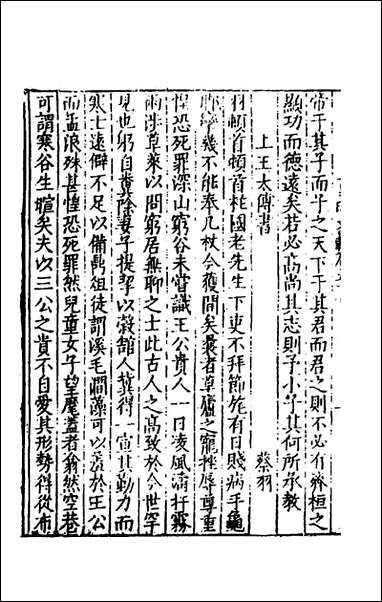 帝于其子而子之天下于其君而君之則不必有齊桓之
顯功而德遠矣若必高尚其志則予小子其何所承教
上王太傅書
蔡羽
羽頓首頓首柱國老先生下吏不拜節旄有日賤病手龜
幾不能奉几杖今獲間矣曩者草廬之寵挫辱尊重
惶恐死罪深山窮谷未嘗識王公貴人一日凌風濤扞霧
雨涉草萊以問窮居無聊之士此古人之高致於今世罕
見也躬自糞除妻子提挈以穀館人冀得一宿其勤力而
寒士遠僻不足以備鼎俎徒謂溪毛澗藻可以羞於王公
而孟浪殊甚惶恐死罪然兒童女子望麾蓋者翕然空巷
可謂寒谷生暄矣夫以三公之貴不自愛其形勢得從布